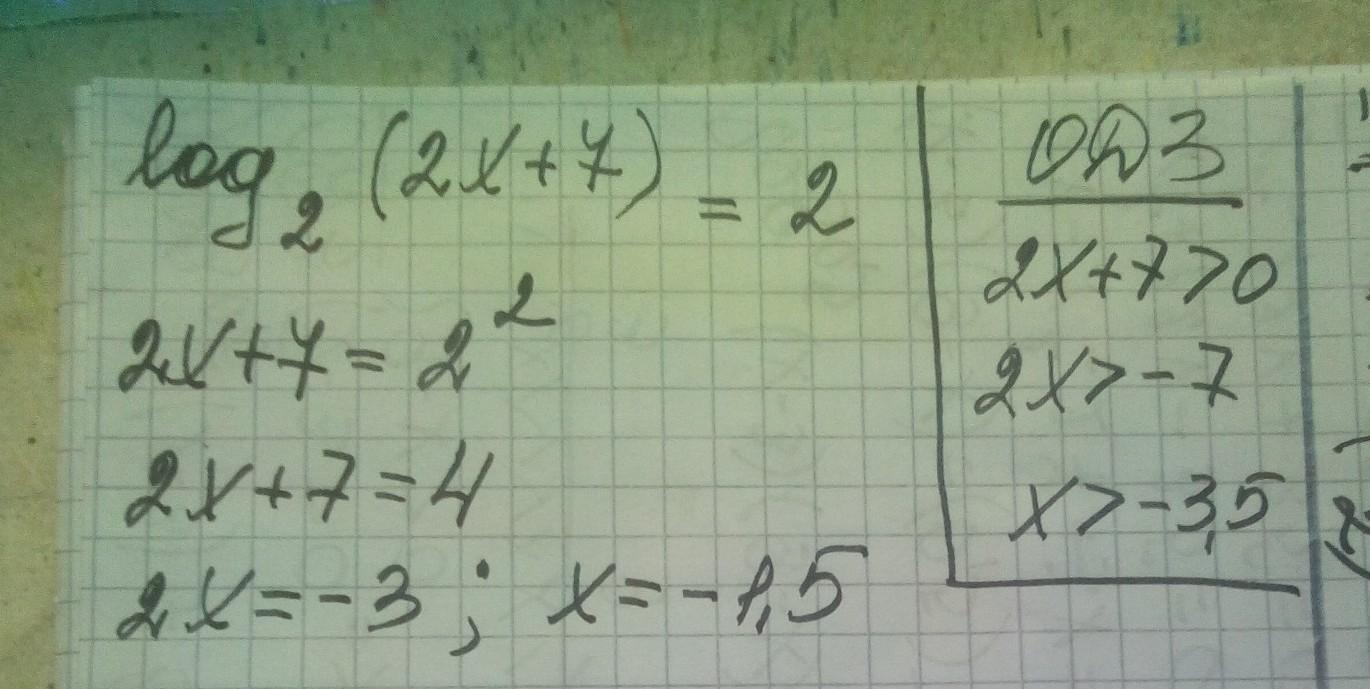 log₂(2x+7) = 2
2x+7 = 2²
2x+7=4
2x=-3; x=-1,5
ОДЗ
2x+7>0
2x>-7
x>-3,5